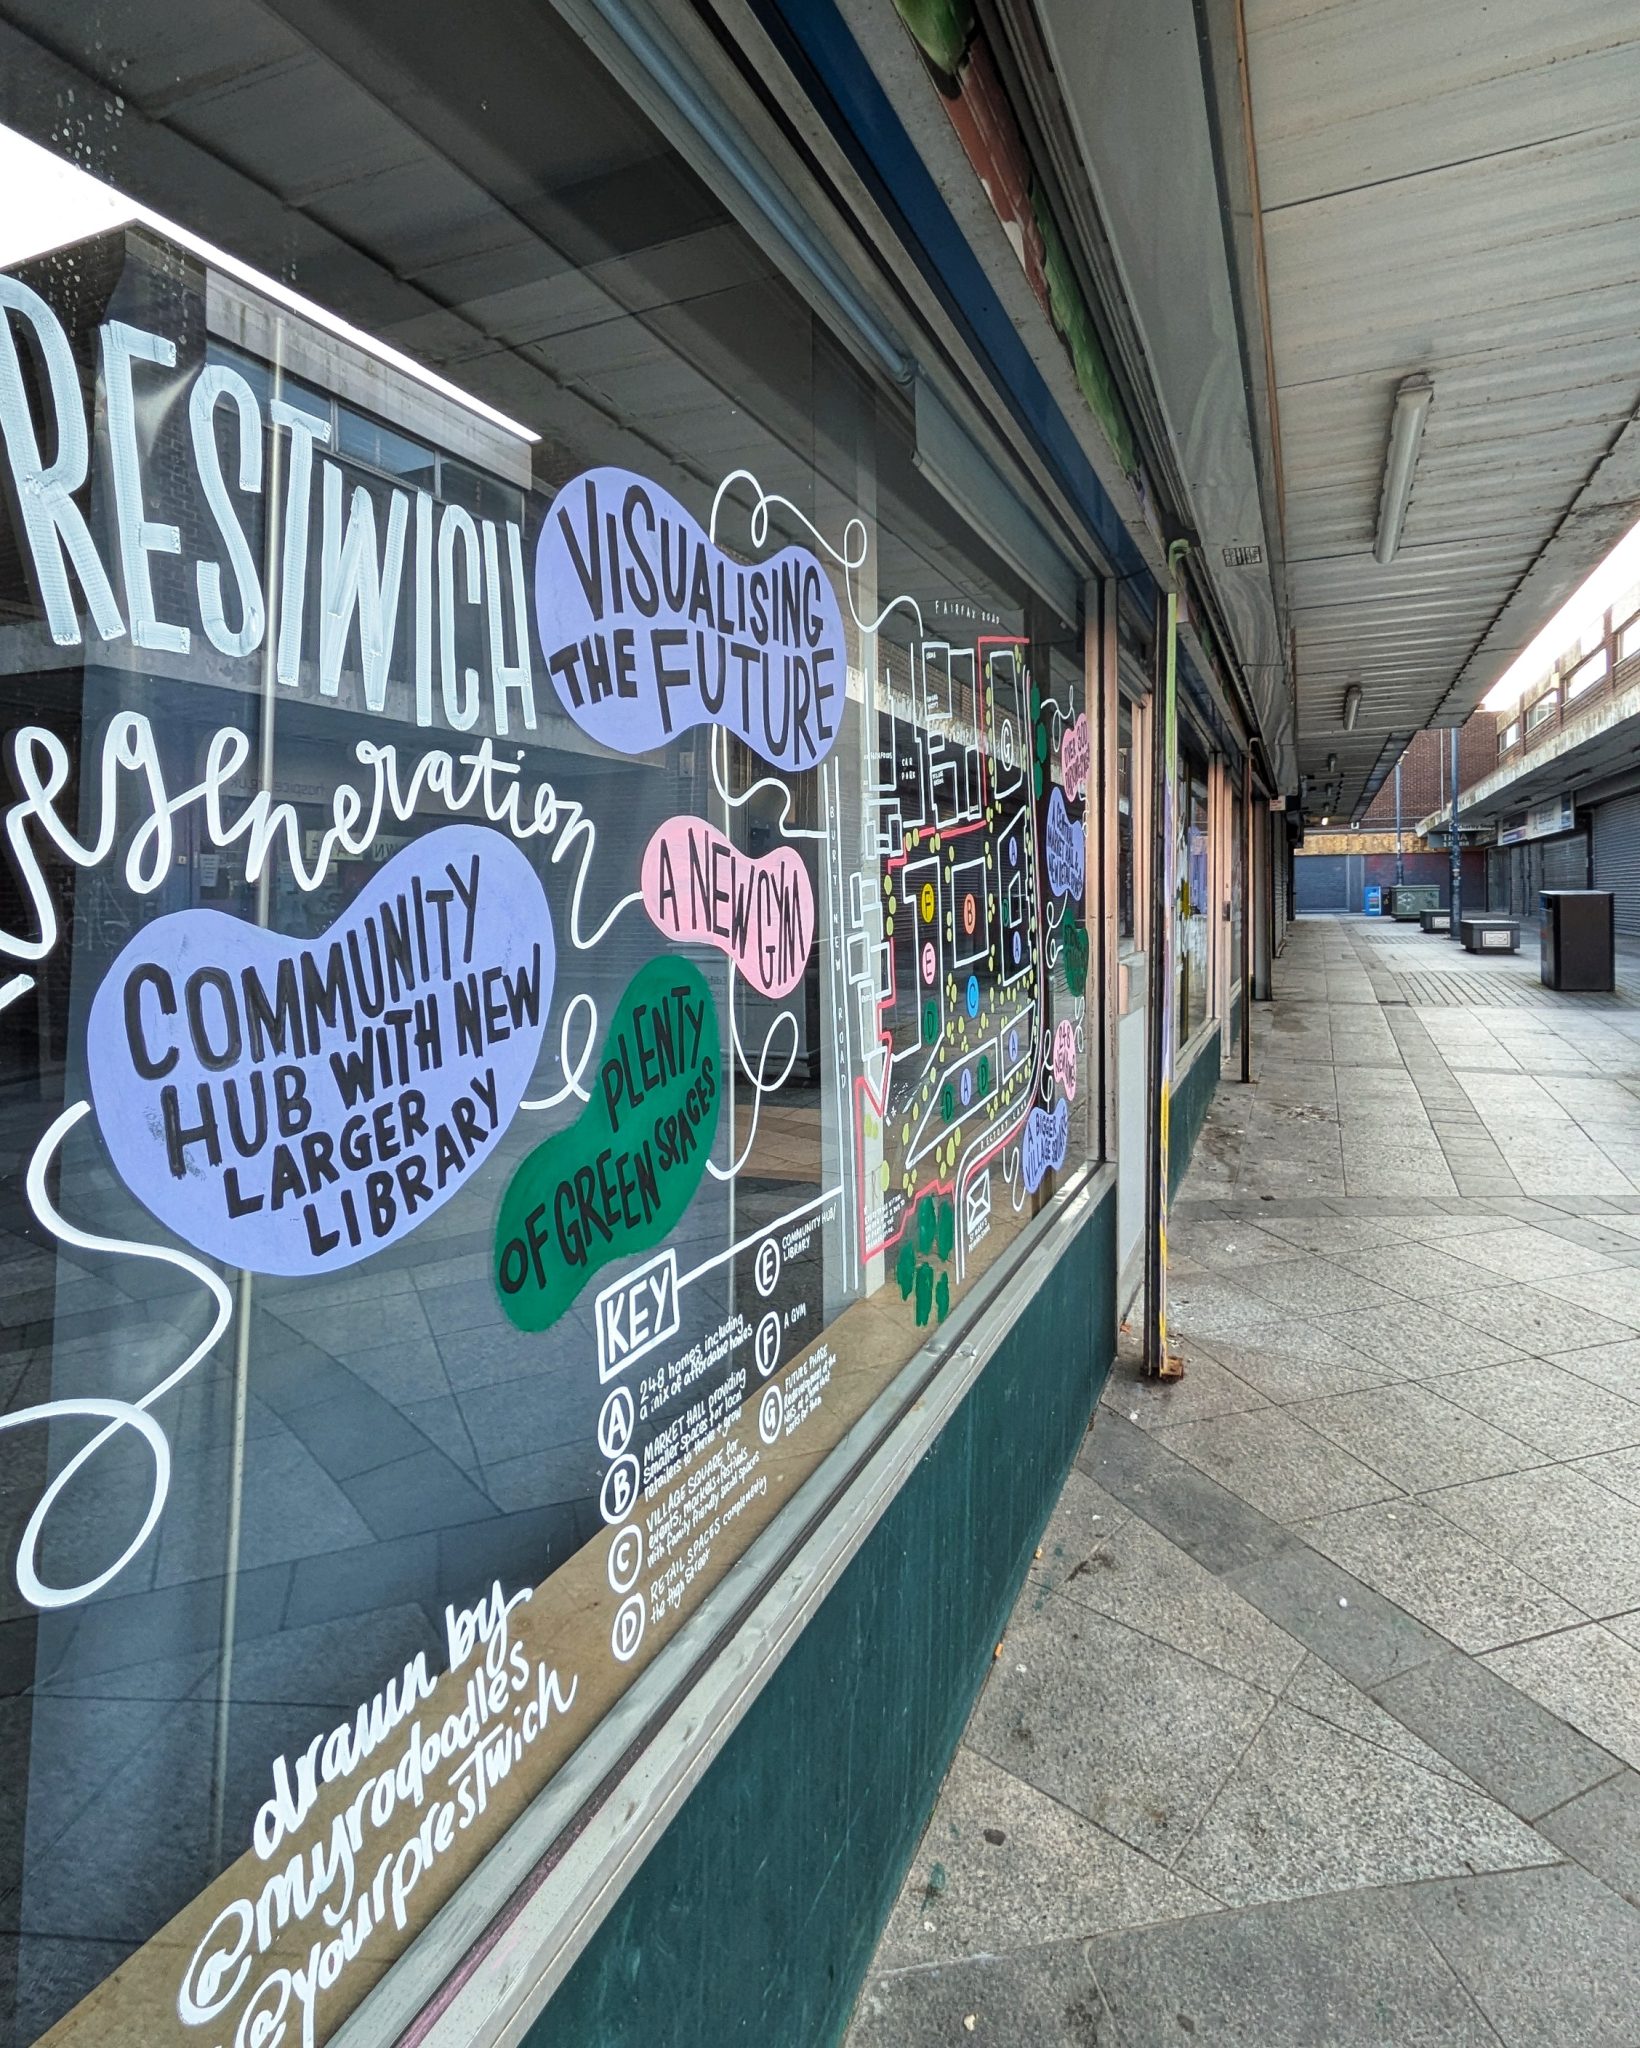 RESTWICH
egeneration
VISUALISING
THE FUTURE
COMMUNITY
HUB WITH NEW
LARGER
LIBRARY
A NEW GYM
PLENTY
OF GREEN SPACES
KEY
A 248 homes, including
a mix of affordable homes
B MARKET HALL providing
smaller spaces for local
retailers to thrive + grow
C VILLAGE SQUARE for
events, markets + festivals
with family friendly social spaces
D RETAIL SPACES complementing
the High Street
E COMMUNITY HUB/
LIBRARY
F A GYM
G FUTURE PHASE
Redevelopment of the
drawn by
@myrodoodles
@yourprestwich
FAIRFAX ROAD
BURY NEW ROAD
CAR
PARK
RECTORY LANE
G
A
F
B
D
E
A
C
D
A
D
A
D
A BIGGER
VILLAGE SQUARE